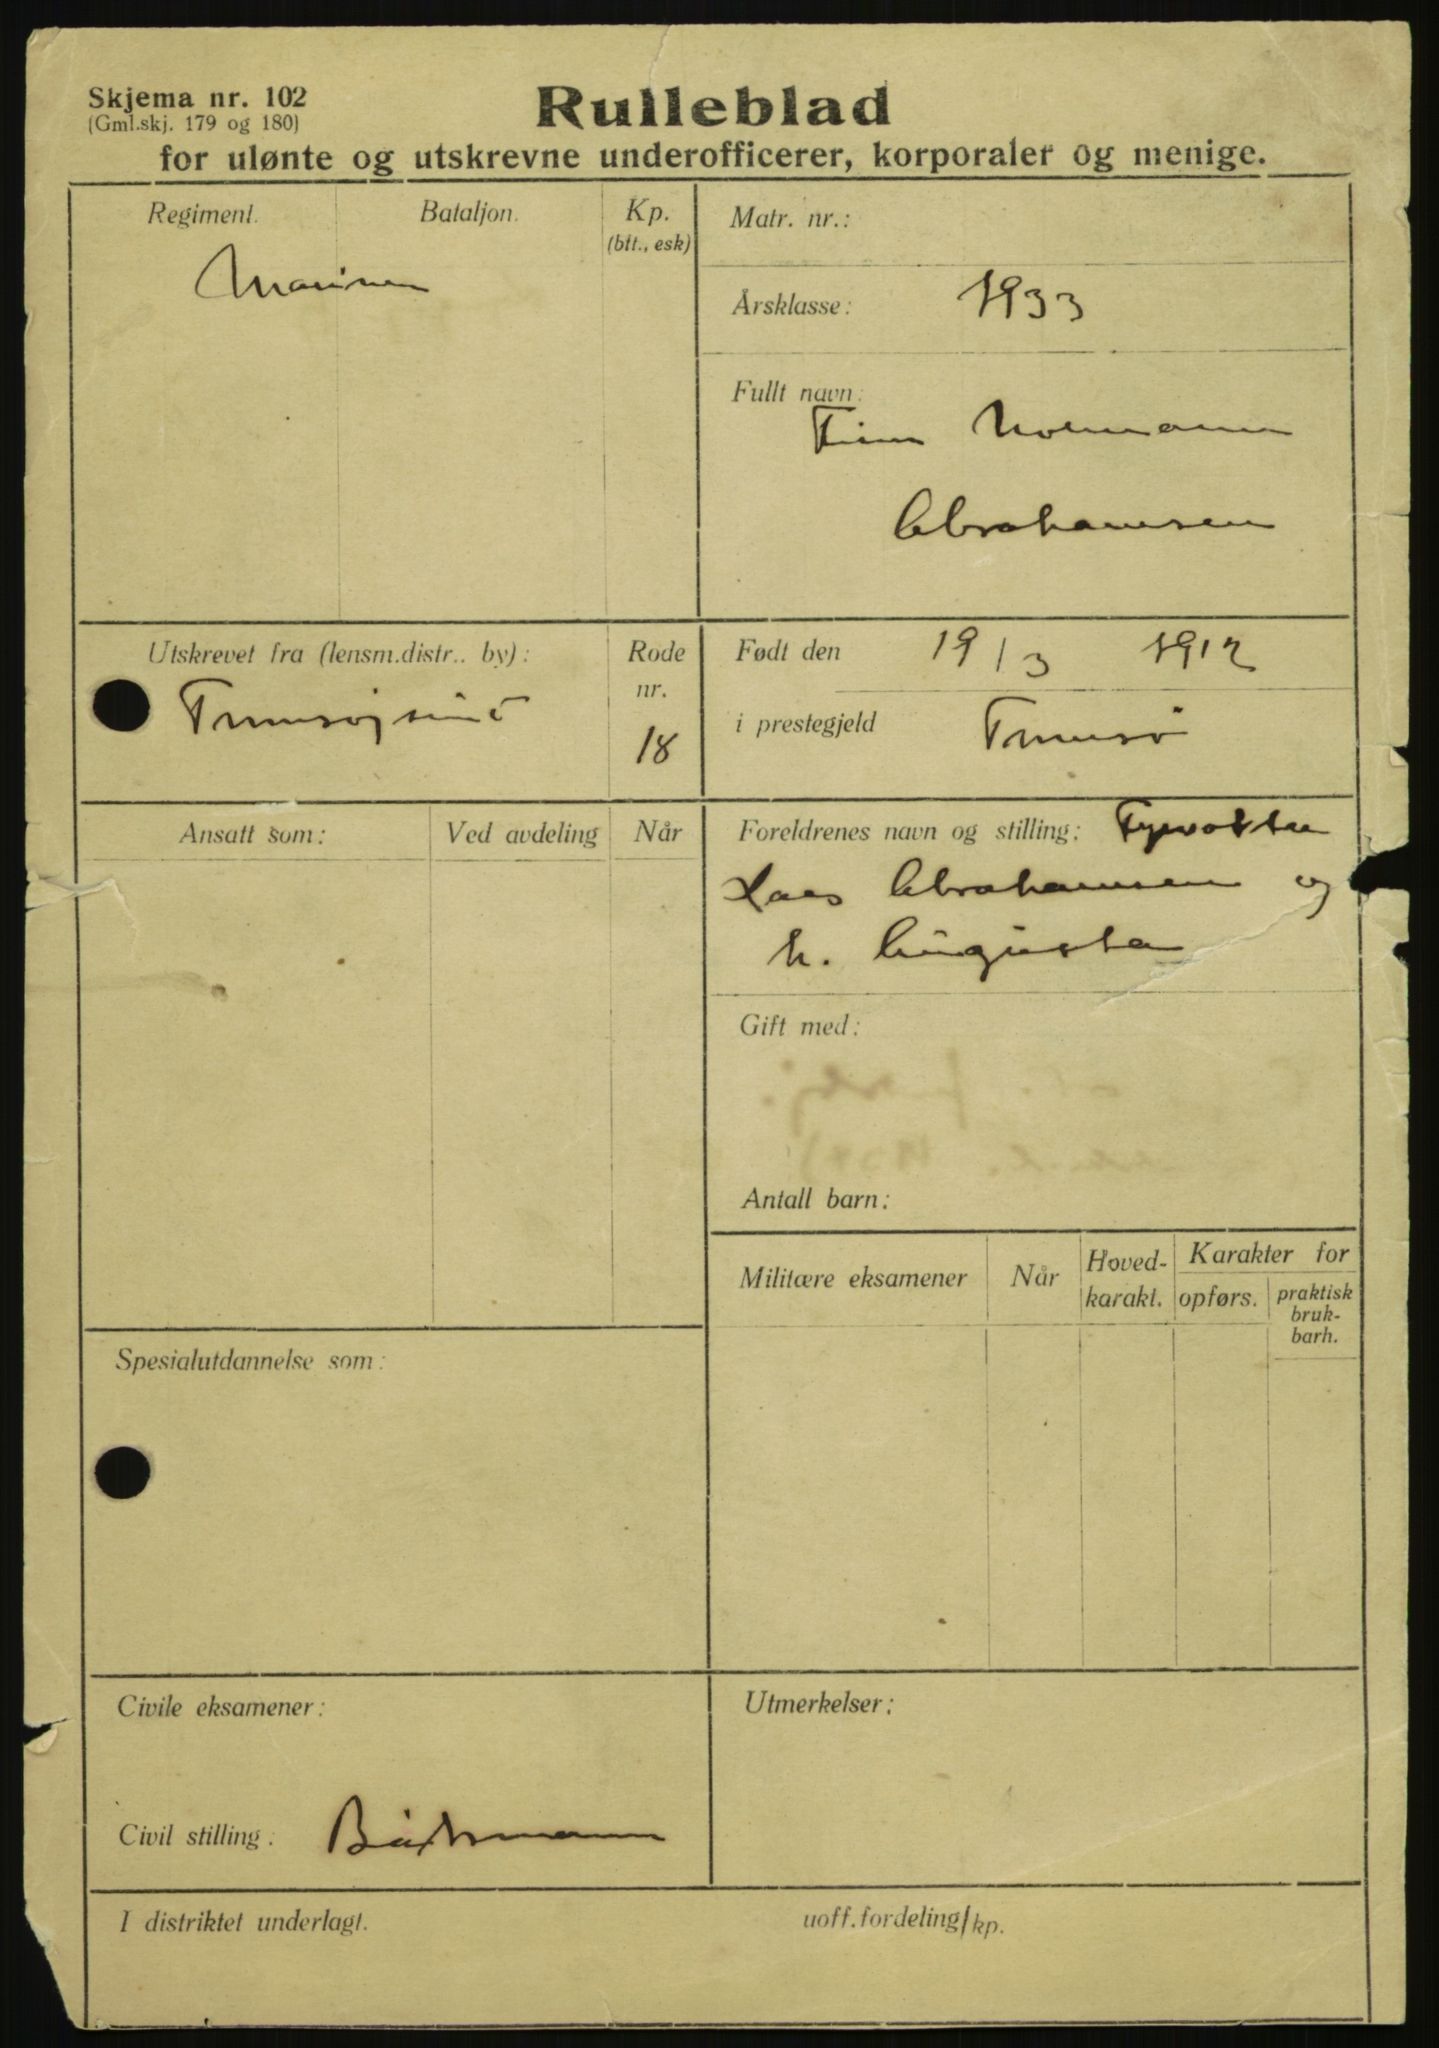 Skjema nr. 102
(Gml.skj. 179 og 180)
Rulleblad
for ulønte og utskrevne underofficerer, korporaler og menige.
Regiment.
Bataljon.
Kp.
(btt., esk)
Marinen
Matr. nr.:
Årsklasse: 1933
Fullt navn:
Finn Normann
Abrahamsen
Utskrevet fra (lensm.distr.. by):
Rode
nr.
18
Født den 19/3 1912
i prestegjeld Tromsø
Ansatt som:
Ved avdeling
Når
Foreldrenes navn og stilling: Fyrvokter
Lars Abrahamsen og
h. Augusta
Gift med:
Antall barn:
Militære eksamener
Når
Hoved-
karakt.
Karakter for
opførs.
praktisk
bruk-
barh.
Spesialutdannelse som:
Civile eksamener:
Utmerkelser:
Civil stilling: Båtsmann
I distriktet underlagt.
uoff.fordeling/kp.